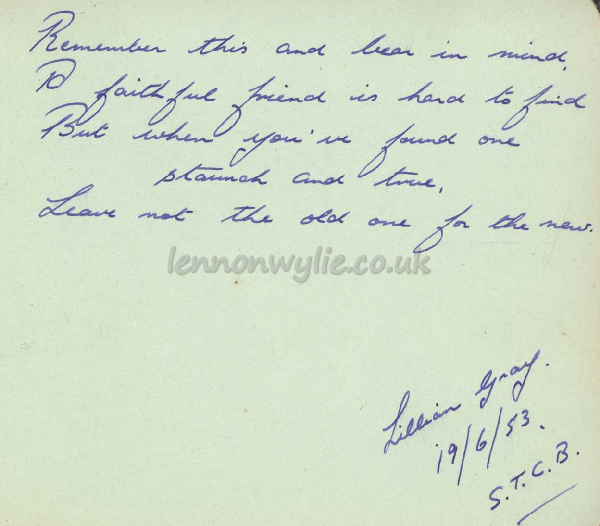 Remember this and bear in mind,
A faithful friend is hard to find
But when you've found one
staunch and true,
Leave not the old one for the new.
lennonwylie.co.uk
Lillian Gray.
19/6/53.
S.T.C.B.